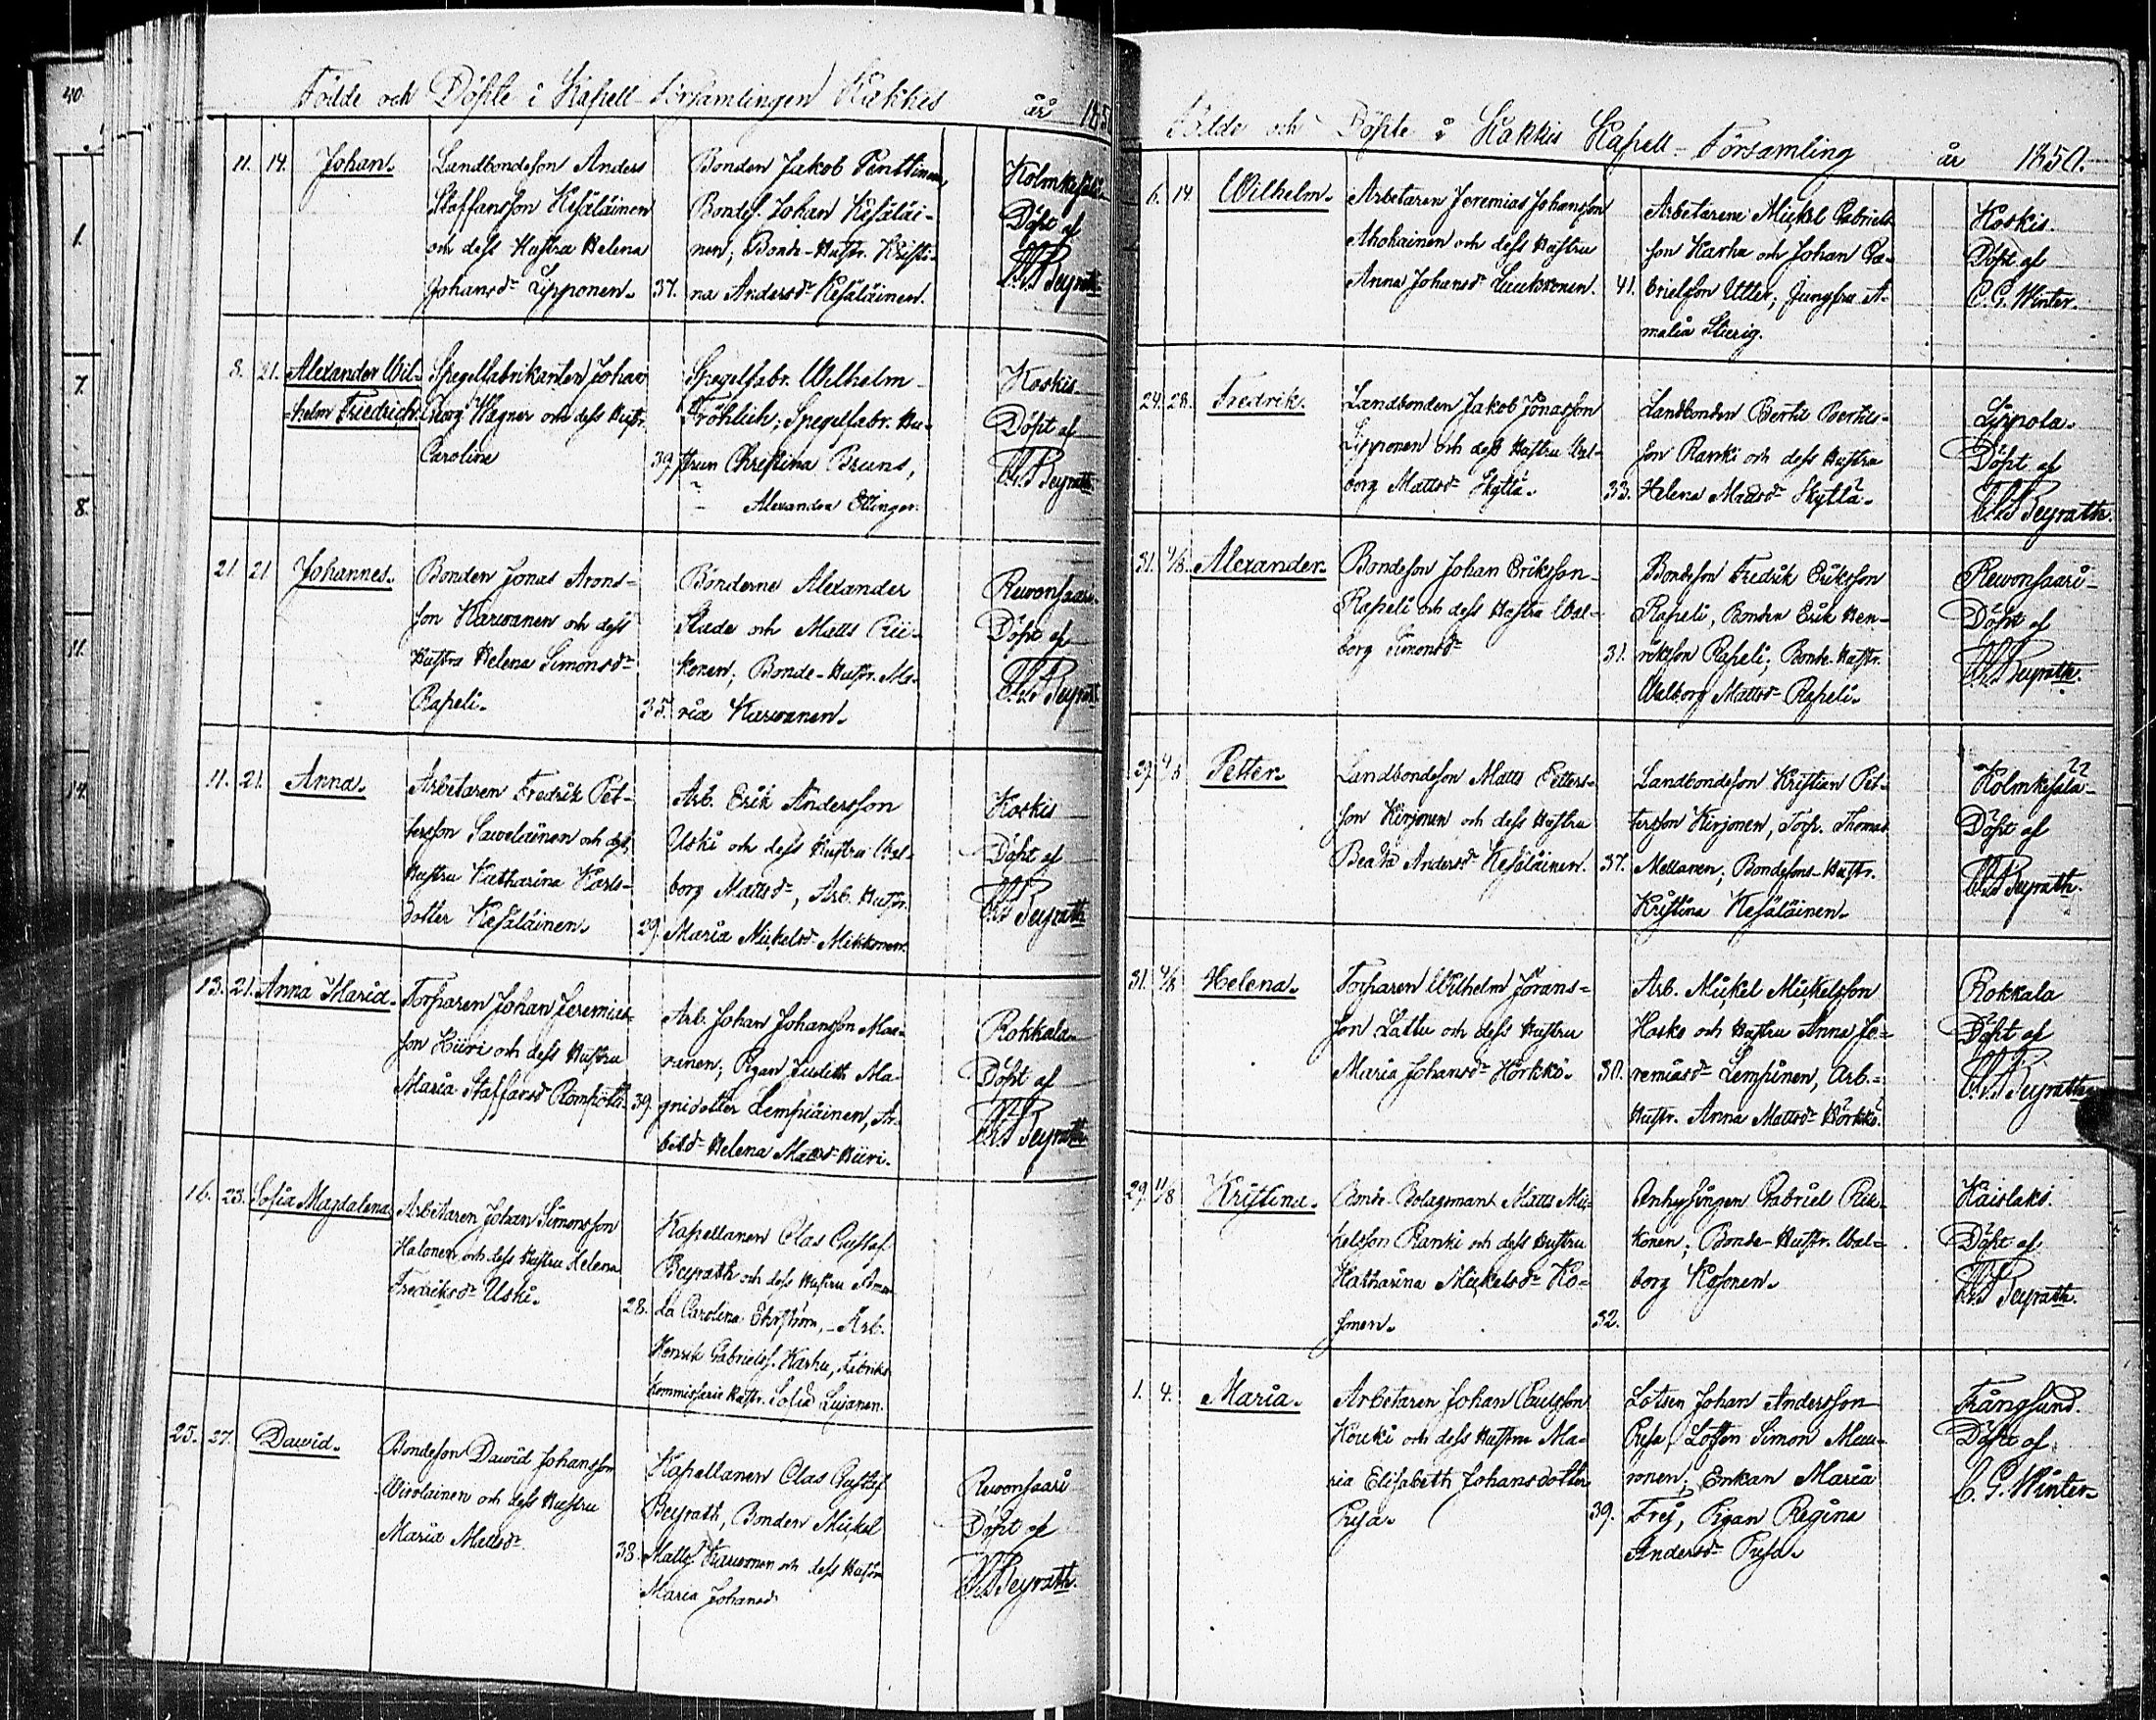 Födde och Döpte i Kapell-Församlingen Kakkis år 185
11. 14. Johan.
Landbondeson Anders
Staffansson Kesäläinen
och dess Hustru Helena
Johansdr Lipponen.
37.
Bonden Jakob Penttinen,
Bondes. Johan Kesäläi-
nen; Bonde-Hustr. Kristi-
na Andersdr Kesäläinen.
Kolmkesälä
Döpt af
Beyrath
8. 21. Alexander Wil-
helm Friedrich.
Spegelfabrikanten Johan
Georg Wagner och dess Hustr.
Caroline
39.
Spegelfabr. Wilhelm
Fröhlich; Spegelfabr. Hu-
strun Christina Bruns,
Alexandra Ettinger.
Koskis
Döpt af
Beyrath
21. 21 Johannes.
Bonden Jonas Arons-
son Karwanen och dess
Hustru Helena Simonsdr
Rapeli.
35.
Bönderne Alexander
Skade och Matts Pii-
konen; Bonde-Hustr. Ma-
ria Karwanen.
Rewonsaari
Döpt af
Beyrath
11. 21. Anna.
Arbetaren Fredrik Pet-
tersson Saweläinen och dess
Hustru Katharina Karls-
dotter Kesäläinen.
29.
Arb. Erik Andersson
Uski och dess Hustru Wal-
borg Mattsdr, Arb. Hustr.
Maria Mickelsdr Mikkonen.
Koskis
Döpt af
Beyrath
13. 21. Anna Maria.
Torparen Johan Jeremias-
son Hiiri och dess Hustru
Maria Staffansdr Rompotti.
39.
Arb. Johan Johansson Mau-
ranen; Pigan Judith Ma-
gnidotter Lempiäinen, Ar-
betsd Helena Mattsdr Hiiri.
Rokkala
Döpt af
Beyrath
16. 23. Sofia Magdalena
Arbetaren Johan Simonsson
Halonen och dess Hustru Helena
Fredriksdr Uski.
28.
Kapellanen Clas Gustaf
Beyrath och dess Hustru Aman-
da Carolina Ekström, Arb.
Henrik Gabriels. Karhu, Fabriks
Kommissarie Hustr. Sofia Lusanen.
25. 27. Dawid.
Bondeson Dawid Johansson
Wirolainen och dess Hustru
Maria Mattsdr
38.
Kapellanen Clas Gustaf
Beyrath, Bonden Mickel
Matts. Karwonen och dess Hustru
Maria Johansdr
Rewonsaari
Döpt af
Beyrath.
Födde och Döpte i Kakkis Kapell-Församling år 1850.
6. 14 Wilhelm.
Arbetaren Jeremias Johansson
Ahohainen och dess Hustru
Anna Johansdr Luukkonen.
41.
Arbetarene Mickel Gabriels-
son Karhu och Johan Ga-
brielsson Utter; Jungfru A-
malia Stierig.
Koskis.
Döpt af
C. G. Winter.
24. 28. Fredrik.
Landbonden Jakob Jonasson
Lipponen och dess Hustru Wal-
borg Mattsdr Skyttä.
33.
Landbonden Bertil Bertils-
son Ranki och dess Hustru
Helena Mattsdr Skyttä.
Lippola.
Döpt af
Beyrath.
31. 4/8. Alexander.
Bondeson Johan Eriksson
Rapeli och dess Hustru Wal-
borg Simonsdr
31.
Bondeson Fredrik Eriksson
Rapeli, Bonden Erik Hen-
riksson Rapeli; Bonde-Hustr.
Walborg Mattsdr Rapeli.
Rewonsaari
Döpt af
Beyrath.
29. 4/8 Petter.
Landbondeson Matts Petters-
son Kirjonen och dess Hustru
Beata Andersdr Kesäläinen.
37.
Landbondeson Kristian Pet-
tersson Kirjonen, Torp. Thomas
Mellanen; Bondesons-Hustr.
Kristina Kesäläinen.
Kolmkesälä
Döpt af
Beyrath.
31. 4/8 Helena.
Torparen Wilhelm Jörans-
son Lattu och dess Hustru
Maria Johansdr Hörkkö.
30.
Arb. Mickel Mickelsson
Hosko och Hustru Anna Je-
remiasdr Lempinen, Arb.-
Hustr. Anna Mattsdr Hörkkö.
Rokkala
Döpt af
Beyrath
29. 11/8 Kristina.
Bonde-Bolagsman Matts Mic-
kelsson Ranki och dess Hustru
Katharina Mickelsdr Ko-
sonen.
32.
Anhysingen Gabriel Pii-
konen; Bonde-Hustr. Wal-
borg Kosonen.
Kaislaks.
Döpt af
Beyrath.
1. 4. Maria.
Arbetaren Johan Paulsson
Kouki och dess Hustru Ma-
ria Elisabeth Johansdotter
Pusa.
39.
Lotsen Johan Andersson
Pusa, Lotsen Simon Muu-
ronen; Enkan Maria
Frej, Pigan Regina
Andersdr Pusa.
Trångsund.
Döpt af
C. G. Winter